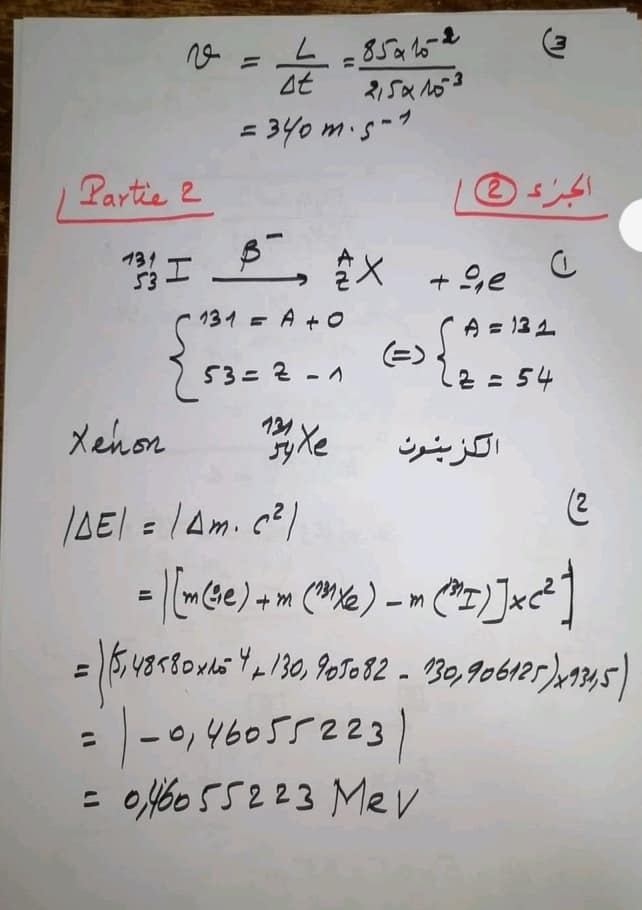 v = L/Δt = 85x10⁻²/2,5x10⁻³ (3
= 340 m.s⁻¹
Partie 2 الجزء (2)
¹³¹₅₃I —β⁻→ ᴬ_Z X + ⁰₋₁e (1
{ 131 = A + 0 (=> { A = 131
{ 53 = Z - 1 { Z = 54
Xénon ¹³¹₅₄Xe الكزينون
|ΔE| = |Δm. c²| (2
= |[m(⁰₋₁e) + m(¹³¹Xe) - m(¹³¹I)]xc²]
= |(5,48580x10⁻⁴ + 130,905082 - 130,906125)x931,5|
= |-0,46055223|
= 0,46055223 MeV